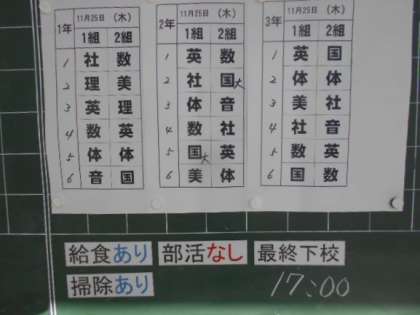 1年 11月25日 (木)
1組 2組
1 社 数
2 理 美
3 英 理
4 数 英
5 体 体
6 音 国
2年 11月25日 (木)
1組 2組
1 英 数
2 社 国大
3 体 音
4 数 社
5 国大 英
6 美 体
3年 11月25日 (木)
1組 2組
1 英 国
2 体 体
3 美 社
4 社 音
5 数 英
6 国 数
給食あり 部活なし 最終下校
掃除あり 17:00